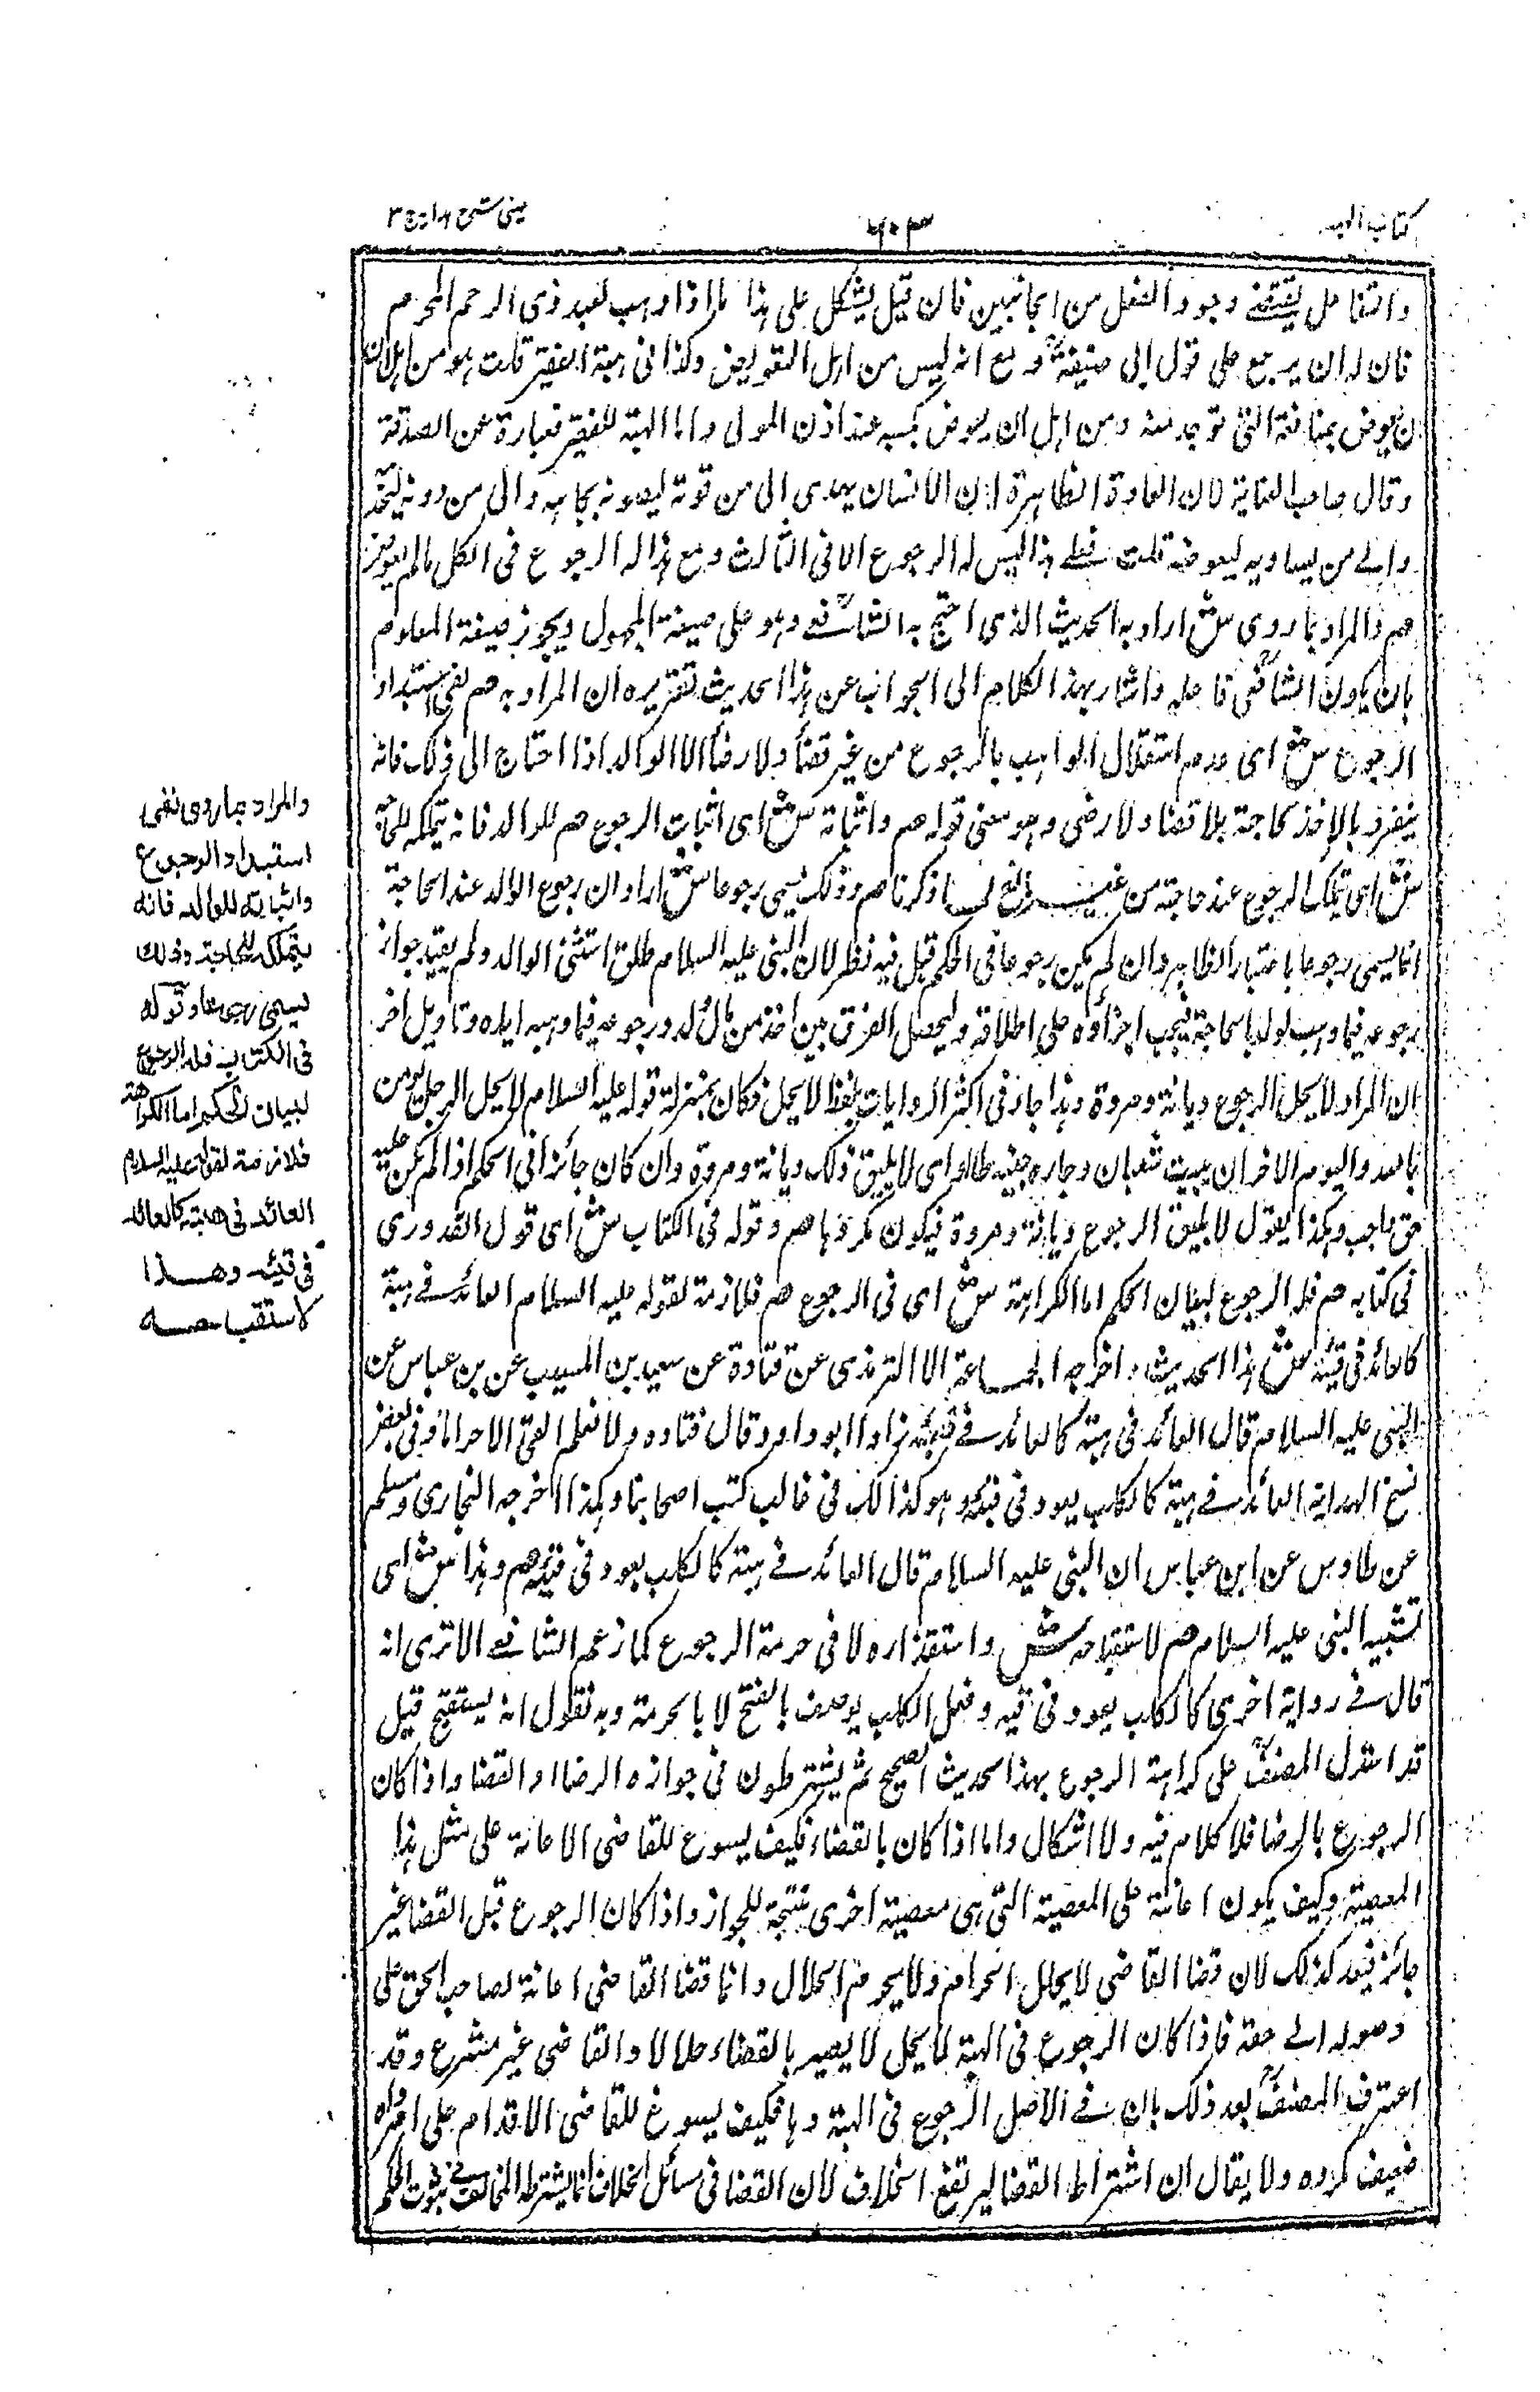 كتاب الهبة
٦٠٣
عینی شرح هدایه ج ٣
والتفاعل يقتضے وجود الفعل من الجانبين فان قيل يشكل على هذا ما اذا وهب لعبد ذى الرحم المحرم
فان له ان يرجع على قول ابى حنيفةؒ مع انه ليس من اهل التعويض وكذا فى هبة الفقير قلت هو من اهل ان
يعوض بمنافعه التى توجد منه ومن اهل ان يعوض بكسبه عند اذن المولى واما الهبة للفقير فعبارة عن الصدقة
وقال صاحب العناية لان العادة الظاهرة ان الانسان يهدى الى من فوقه ليصونه بجاهه والى من دونه ليخدمه
والے من يساويه ليعوضه قلت فعلے هذا ليس له الرجوع الا فى الثالث ومع هذا له الرجوع فى الكل ما لم يعوض
هم والمراد بما روى ش اراد به الحديث الذى احتج به الشافعےؒ وهو على صيغة المجهول ويجوز صيغة المعلوم
بان يكون الشافعىؒ فاعله واشار بهذا الكلام الى الجواب عن هذا الحديث تقريره ان المراد به هم نفى استبداد
الرجوع ش اى عدم استقلال الواهب بالرجوع من غير قضاء ولا رضا الا الوالد اذا احتاج الى ذلك فانه
ينفرد بالاخذ لحاجته بلا قضاء ولا رضى وهو معنى قوله هم واثباته ش اى اثبات الرجوع هم للوالد فانه يتملكه للحاجة
ش اى يتملك الرجوع عند حاجته من غير الخ لما ذكرنا هم وذلك يسمى رجوعا ش اراد ان رجوع الوالد عند الحاجة
انما يسمى رجوعا باعتبار الظاهر وان لم يكن رجوعا فى الحكم قيل فيه نظر لان النبى عليه السلام طلق استثنى الوالد ولم يقيد جواز
رجوعه فيما وهب لولده بالحاجة فيجب اجراؤه على اطلاقه وليحصل الفرق بين اخذ من مال ولده ورجوعه فيما وهبه اياه وتاويل اخر
ان المراد لا يحل الرجوع ديانة ومروة وهذا جاز فى اكثر الروايات بلفظ لا يحل فكان بمنزلة قوله عليه السلام لا يحل الرجل يؤمن
بالله واليوم الاخر ان يبيت شعبان وجاره جنبه طاو اى لا يليق ذلك ديانة ومروة وان كان جائزا فى الحكم اذا لم يكن عليه
حق واجب وهكذا يقول لا يليق الرجوع ديانة ومروة فيكون مكروها هم وقوله فى الكتاب ش اى قول القدورى
فى كتابه هم فله الرجوع لبيان الحكم اما الكراهة ش اى فى الرجوع هم فلازمة لقوله عليه السلام العائد فے هبته
كالعائد فى قيئه ش هذا الحديث اخرجه الجماعة الا الترمذى عن قتادة عن سعيد بن المسيب عن بن عباس عن
النبى عليه السلام قال العائد فى هبته كالعائد فے قيئه زاد ابو داود قال قتاده ولا نعلم القئ الا حراما وفى بعض
نسخ الهداية العائد فے هبته كالكلب يعود فى قيئه وهو كذالك فى غالب كتب اصحابنا وهكذا اخرجه البخارى ومسلم
عن طاوس عن ابن عباس ان النبى عليه السلام قال العائد فے هبته كالكلب يعود فى قيئه هم وهذا ش اى
تشبيه النبى عليه السلام هم لاستقباحه ش واستقذاره لا فى حرمة الرجوع كما زعم الشافعے الا ترى انه
قال فے رواية اخرى كالكلب يعود فى قيه وفعل الكلب يوصف بالقبح لا بالحرمة وبه نقول انه يستقبح قيل
قد استدل المصنفؒ على كراهة الرجوع بهذا الحديث الصحيح ثم يشترطون فى جوازه الرضا او القضا واذا كان
الرجوع بالرضا فلا كلام فيه ولا اشكال واما اذا كان بالقضاء فكيف يسوغ للقاضى الاعانة على مثل هذا
المعصية وكيف يكون اعانته على المعصية التى هى معصية اخرى منتجة للجواز واذا كان الرجوع قبل القضا غير
جائز فبعد كذلك لان قضا القاضى لا يحلل الحرام ولا يحرم الحلال وانما قضا القاضى اعانة لصاحب الحق على
وصوله الے حقه فاذا كان الرجوع فى الهبة لا يحل لا يصير بالقضاء حلالا والقاضى غير مشرع وقد
اعترف المصنفؒ بعد ذلك بان فے الاصل الرجوع فى الهبة وها فكيف يسوغ للقاضى الاقدام على امر واه
ضعيف مكروه ولا يقال ان اشتراط القضا ليرتفع الخلاف لان القضا فى مسائل الخلاف انما يشترط المخالف فے ثبوت الحكم
والمراد بما روى نفى
استبداد الرجوع
واثباته للوالد فانه
يتملك للحاجة وذلك
يسمى رجوعا وقوله
فى الكتاب فله الرجوع
لبيان الحكم اما الكراهة
فلازمة لقوله عليه السلام
العائد فى هبته كالعائد
فى قيئه وهذا
لاستقباحه